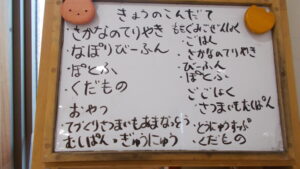 きょうのこんだて
・さかなのてりやき
・なぽりびーふん
・ぽとふ
・くだもの
おやつ
てづくりさつまいもあまなっとう
むしぱん・ぎゅうにゅう
・ごはん
・さかなのてりやき
・びーふん
・ぽとふ
ごごしょく
・さつまいもむしぱん
・とうにゅうすーぷ
・くだもの